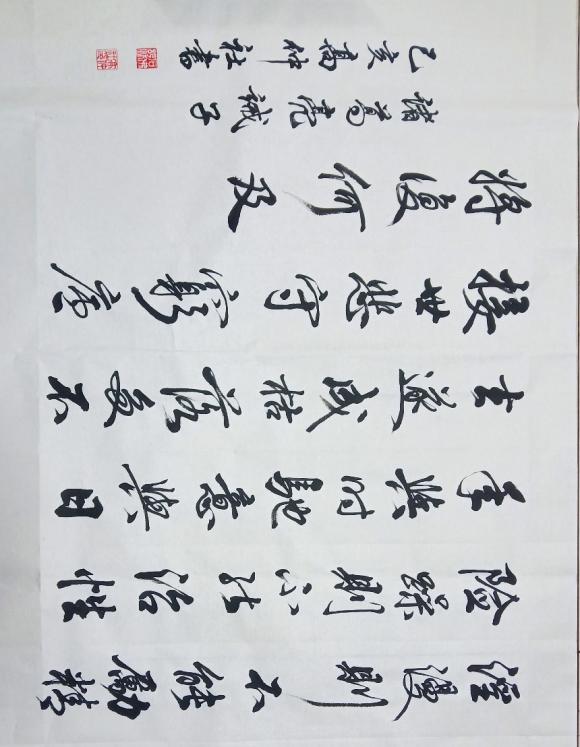 淫漫則不能勵精
險躁則不能治性
年與时馳意與日
去遂成枯落多不
接世悲守窮廬
將復何及
諸葛亮誡子
己亥高仲社書